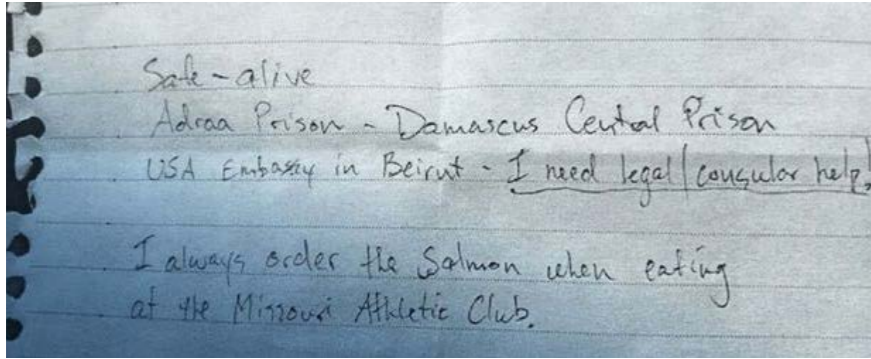 Safe - alive
Adraa Prison - Damascus Central Prison
USA Embassy in Beirut - I need legal/consular help!
I always order the Salmon when eating
at the Missouri Athletic Club.